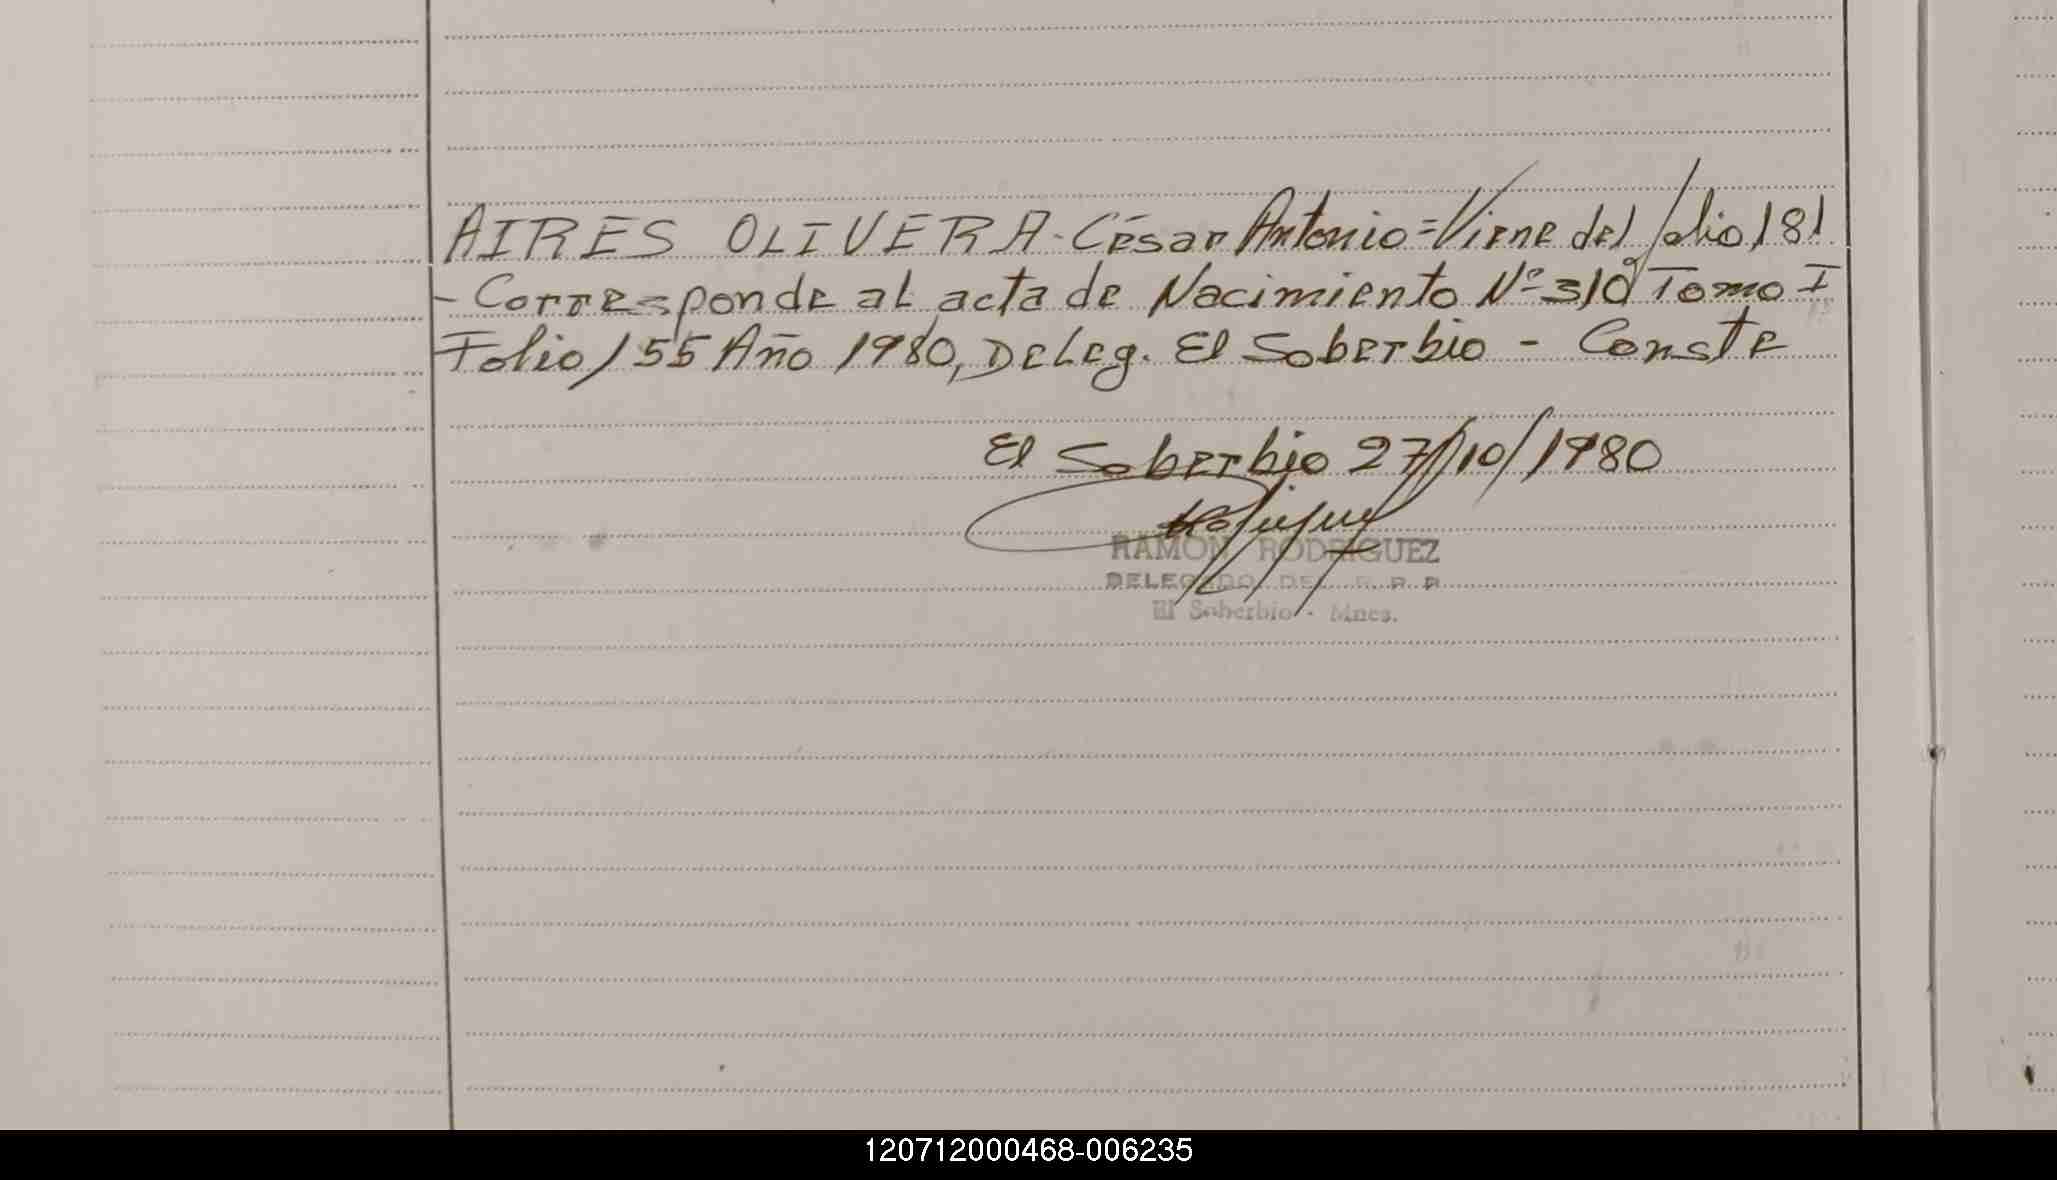 AIRES OLIVERA - César Antonio = Viene del folio 181
- Corresponde al acta de Nacimiento Nº 310 Tomo I
Folio 155 Año 1980, Deleg. El Soberbio - Conste
El Soberbio 27/10/1980
RAMON RODRIGUEZ
DELEGADO DEL R. P. P.
El Soberbio - Mnes.
120712000468-006235